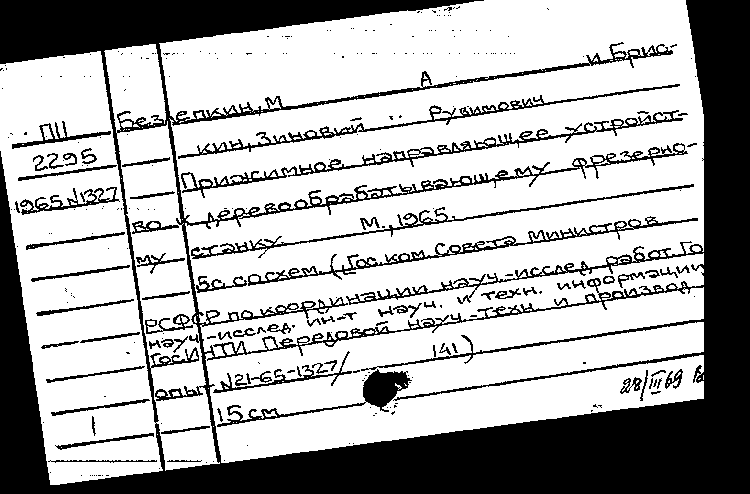 ПП
2295
1965 N1327
Безлепкин, М А и Брис-
кин, Зиновий Рувимович
Прижимное направляющее устройст-
во к деревообрабатывающему фрезерно-
му станку. М., 1965.
5с. со схем. (Гос. ком. Совета Министров
РСФСР по координации науч.-исслед. работ. Го
науч.-исслед. ин-т науч. и техн. информации
ГосИНТИ. Передовой науч.-техн. и производ.
опыт. N21-65-1327/ 141)
15 см
1
28/III 69